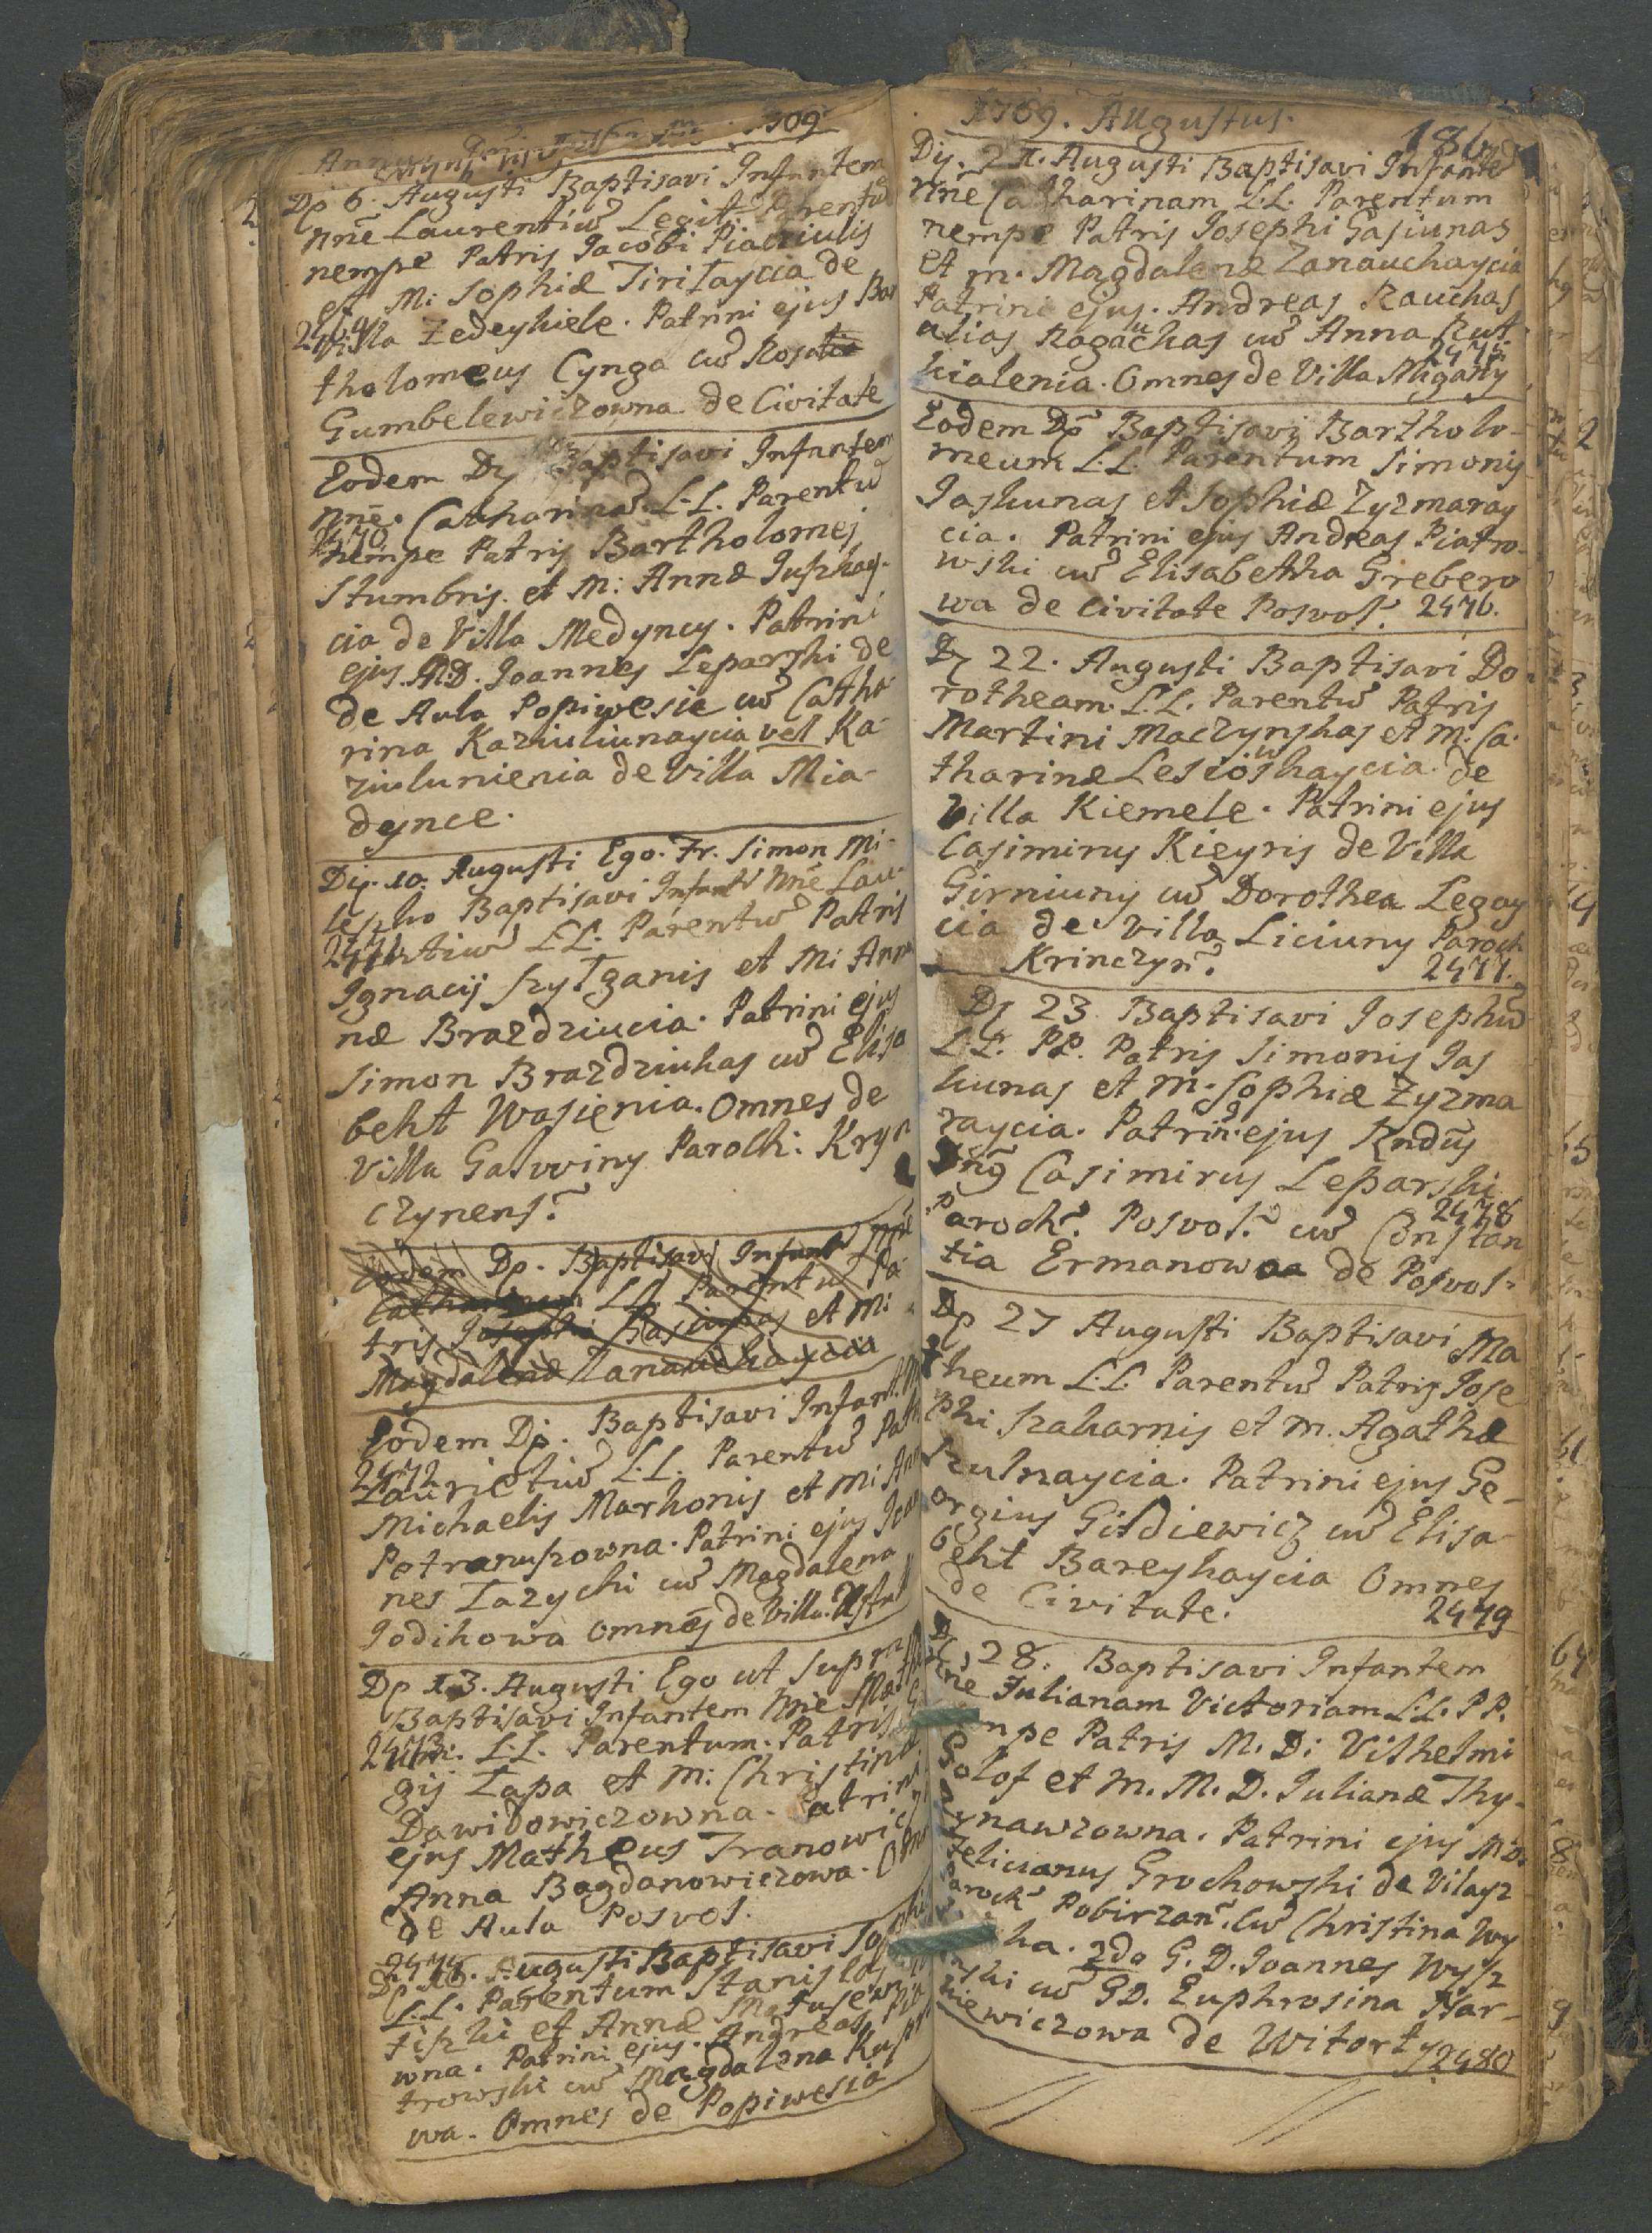 Dp 6. Augusti Baptisavi Infantem
Nnē Laurentiū Legit: Parentū
nempe Patris Jacobi Piacziulis
et M: Sophiæ Tiritaycia de
2469 Villa Zedeykiele. Patrini ejus Bar
tholomeus Cynga cū Rosalia
Gumbelewiczowna de Civitate
Eodem Dp Baptisavi Infantem
Nnē. Catharinā L.L. Parentū
2470 nempe Patris Bartholomej
Stumbris. et M: Annæ Juszkay-
cia de Villa Medyncy. Patrini
ejus. M.D. Joannes Leparski de
de Aula Popiwesie cū Catha
rina Kaziuliunaycia vel Ka-
ziulunienia de Villa Mia-
dynce.
Dp. 10. Augusti Ego. Fr. Simon Mi-
leszko Baptisavi Infantē Nnē Lau-
2471 rentiū L.L. Parentū Patris
Ignacij Szylganis et M: An
næ Brazdziucia. Patrini ejus
Simon Brazdziukas cū Elisa
beht Wasienia. Omnes de
Villa Galwiny Paroch: Kryn
czynens.
Eodem Dp. Baptisavi Infantē Nnē
Catharinam L.L. Parentū Pa-
tris Josephi Gasiunas et M:
Magdalenæ Zanauchaycia
Eodem Dp. Baptisavi Infant. Nn
2472 Laurietiū L.L. Parentū Pat
Michaelis Markonis et M: Ann
Petranuszowna. Patrini ejus Joan
nes Tazycki cū Magdalena
Jodikowa Omnes de Villa. Ustuk
Dp 13. Augusti Ego ut Supra
Baptisavi Infantem Nnē
2473 L.L. Parentum. Patris
gij Łapa et M: Christinæ
Dawidowiczowna. Patrini
ejus Matheus Iranowicz
Anna Bogdanowiczowa. Omn
de Aula Posvol.
2474
Dp 16. Augusti Baptisavi Sophi
L.L. Parentum Stanislai
siszki et Annæ Matusew
wna. Patrini ejus. Andreas Pia
trowski cū Magdalena Kuspe
wa. Omnes de Popiwesia
1769. Augustus.
186
Dp. 21. Augusti Baptisavi Infantē
Nnē Catharinam L.L. Parentum
nempe Patris Josephi Gasiunas
et M. Magdalenæ Zanauchaycia
Patrini ejus. Andreas Rauchas
alias Ragauchas cū Anna Rut-
2475
kialenia. Omnes de Villa Migany
Eodem Dp Baptisavi Bartholo-
meum L.L. Parentum Simonis
Jaskunas et Sophiæ Zyzmaray
cia. Patrini ejus Andreas Piatro-
wski cū Elisabetha Grebero
wa de Civitate Posvol. 2476.
Dp 22. Augusti Baptisavi Do-
rotheam. L.L. Parentū Patris
Martini Maczynskas et M: Ca-
tharinæ Lesiowskaycia. de
Villa Kiemele. Patrini ejus
Casimirus Kieyris de Villa
Girniuny cū Dorothea Legay
cia de Villa Liciuny Paroch
Krinczyn. 2477.
Dp 23. Baptisavi Josephū
L.L. PP. Patris Simonis Jas
kunas et M. Sophiæ Zyzma
raycia. Patrini ejus Rndus
Dnus Casimirus Leparski
2478
Paroch. Posvol. cū Constan
tia Ermanowa de Posvol.
Dp 27 Augusti Baptisavi Ma
theum L.L. Parentū Patris Jose
phi Szakarnis et M. Agathæ
Szulnaycia. Patrini ejus Ge-
orgius Gildiewicz cū Elisa-
beht Bareykaycia Omnes
de Civitate. 2479
Dp 28. Baptisavi Infantem
Nnē Julianam Victoriam L.L. PP.
nempe Patris M. D: Vilhelmi
Golof et M. M. D. Julianæ Thy-
zynawzowna. Patrini ejus M.D.
Felicianus Grochowski de Vilaysz
Paroch Pobirzan. cū Christina Wy
ka. 2do G. D. Joannes Wysz
nski cū GD. Euphrosina Nar-
kiewiczowa de Witorty 2480